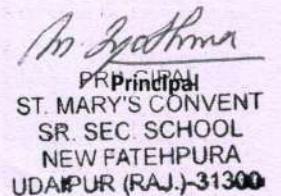 PRINCIPAL
Principal
ST. MARY'S CONVENT
SR. SEC. SCHOOL
NEW FATEHPURA
UDAIPUR (RAJ.)-